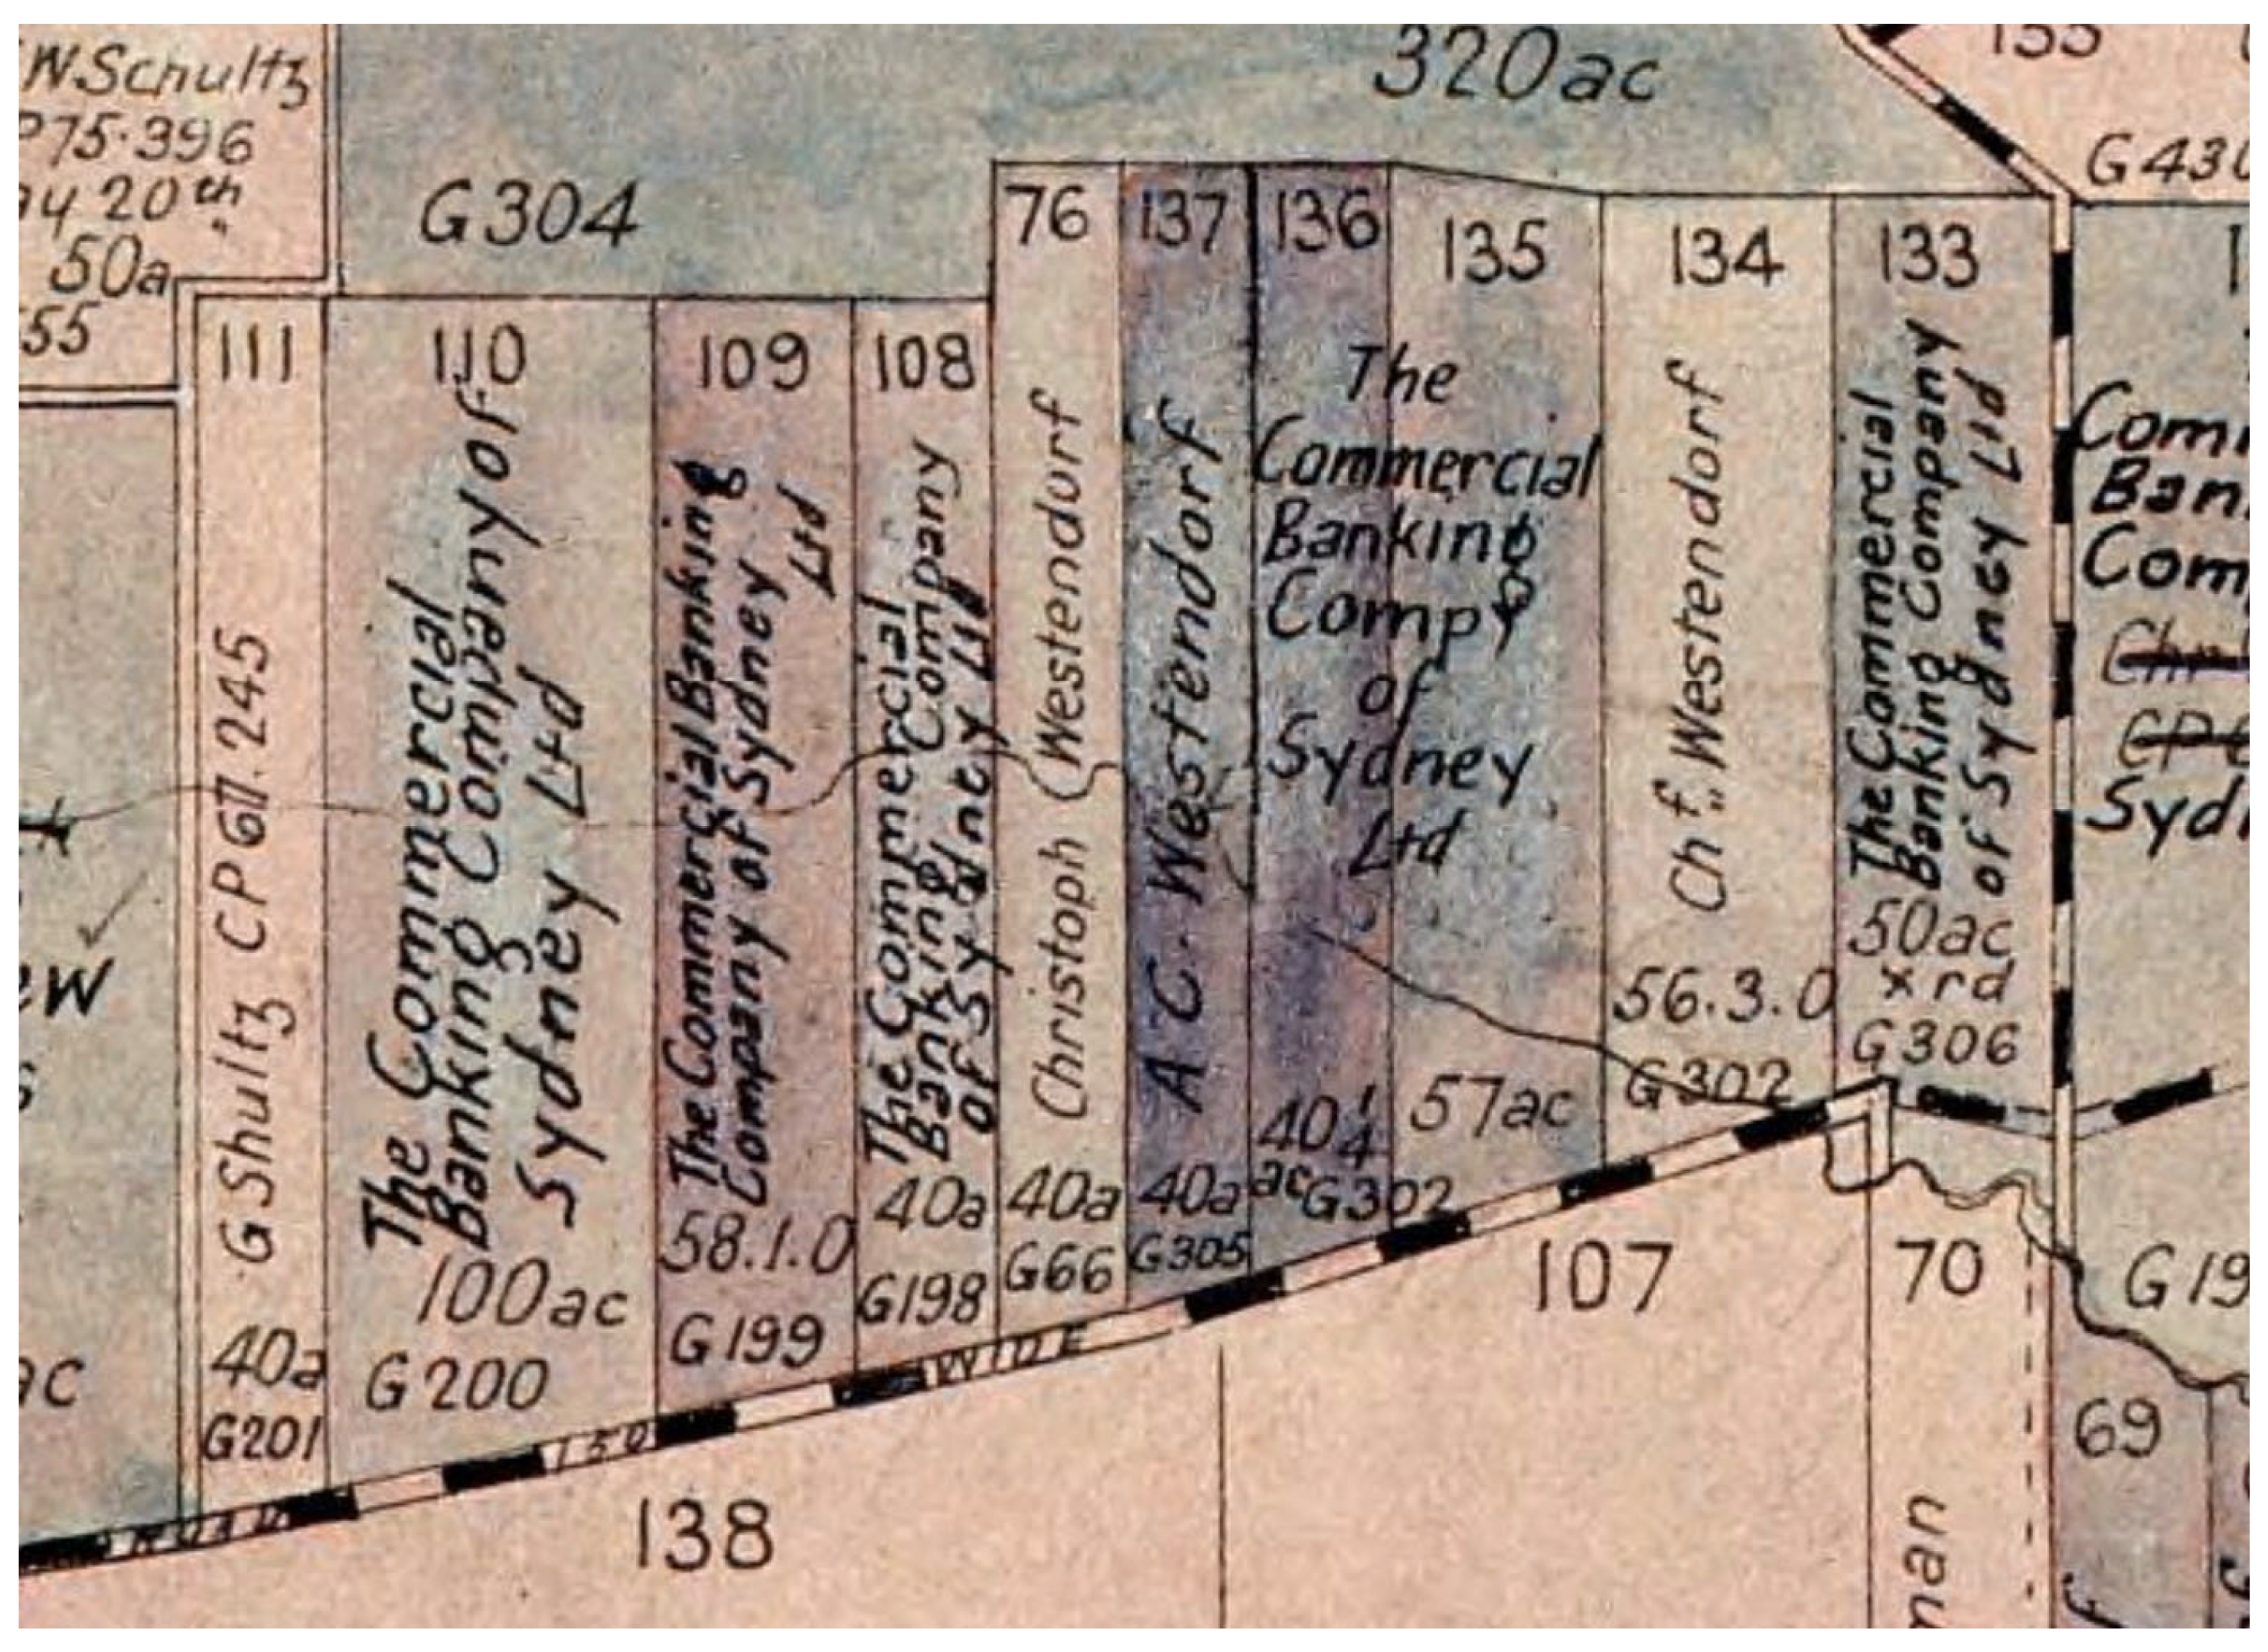 W.Schultz
P75.396
ay 20th
50a
55
320ac
G304
G430
111
G Shultz CP67.245
40a
G201
110
The Commercial
Banking Company of
Sydney Ltd
100ac
G200
109
The Commercial Banking
Company of Sydney
Ltd
58.1.0
G199
108
The Commercial
Banking Company
of Sydney Ltd
40a
G198
76
Christoph Westendorf
40a
G66
137
A C Westendorf
40a
G305
136
135
The
Commercial
Banking
Compy
of
Sydney
Ltd
40 1/4
ac
G302
57ac
134
Chf. Westendorf
56.3.0
G302
133
The Commercial
Banking Company
of Sydney Ltd
50ac
x rd
G306
Com
Ban
Com
Syd
ew
ac
ROAD 150 WIDE
138
107
70
man
G19
69
f